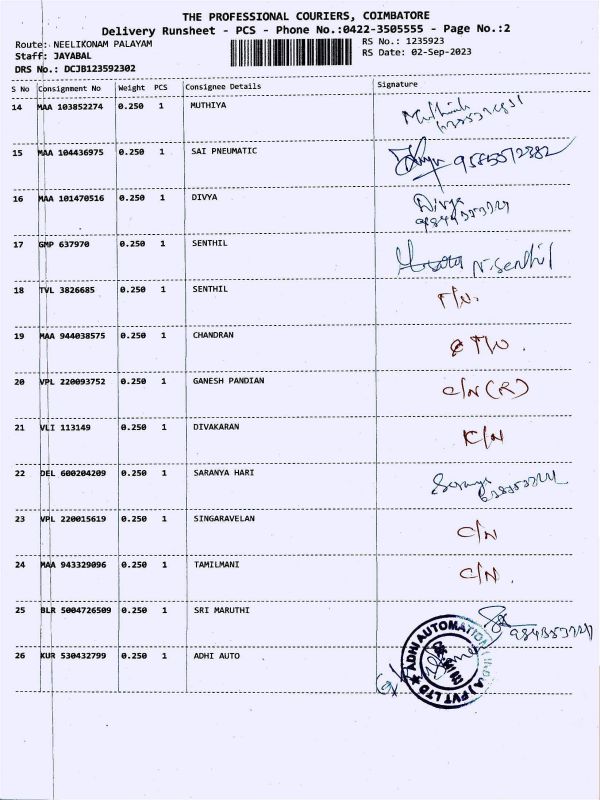 THE PROFESSIONAL COURIERS, COIMBATORE
Delivery Runsheet - PCS - Phone No.:0422-3505555 - Page No.:2
Route: NEELIKONAM PALAYAM
RS No.: 1235923
Staff: JAYABAL
RS Date: 02-Sep-2023
DRS No.: DCJB123592302
S No Consignment No Weight PCS Consignee Details Signature
14 MAA 103852274 0.250 1 MUTHIYA
15 MAA 104436975 0.250 1 SAI PNEUMATIC 9585572382
16 MAA 101470516 0.250 1 DIVYA Divya
17 GMP 637970 0.250 1 SENTHIL N.Senthil
18 TVL 3826685 0.250 1 SENTHIL
19 MAA 944038575 0.250 1 CHANDRAN
20 VPL 220093752 0.250 1 GANESH PANDIAN C/N (R)
21 VLI 113149 0.250 1 DIVAKARAN
22 DEL 600204209 0.250 1 SARANYA HARI
23 VPL 220015619 0.250 1 SINGARAVELAN C/N
24 MAA 943329096 0.250 1 TAMILMANI C/N.
25 BLR 5004726509 0.250 1 SRI MARUTHI
26 KUR 530432799 0.250 1 ADHI AUTO
ADHI AUTOMATION (INDIA) PVT LTD